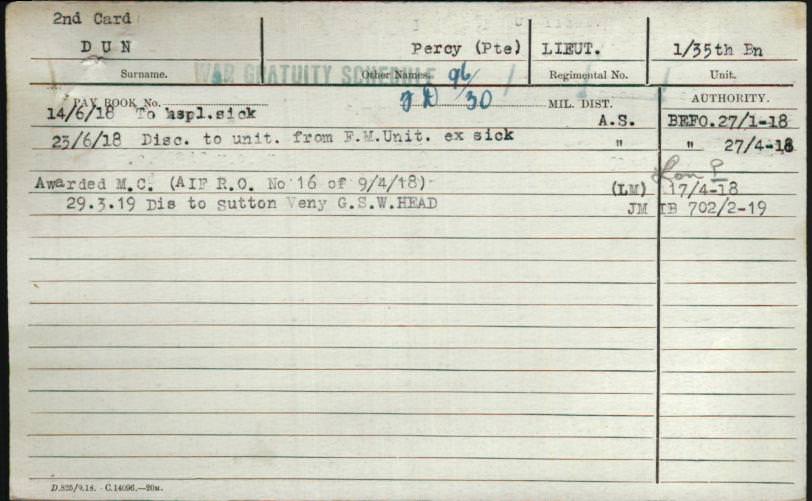 2nd Card
DUN Percy (Pte) LIEUT. 1/35th Bn
Surname. Other Names. Regimental No. Unit.
WAR GRATUITY SCHEDULE 96/30
PAY BOOK No. MIL. DIST. AUTHORITY.
14/6/18 To hspl.sick A.S. BEFO.27/1-18
23/6/18 Disc. to unit. from F.M.Unit. ex sick " " 27/4-18
Awarded M.C. (AIF R.O. No 16 of 9/4/18) (LM) 17/4-18
29.3.19 Dis to Sutton Veny G.S.W.HEAD JM IB 702/2-19
D.825/9.18. - C.14096.—20M.